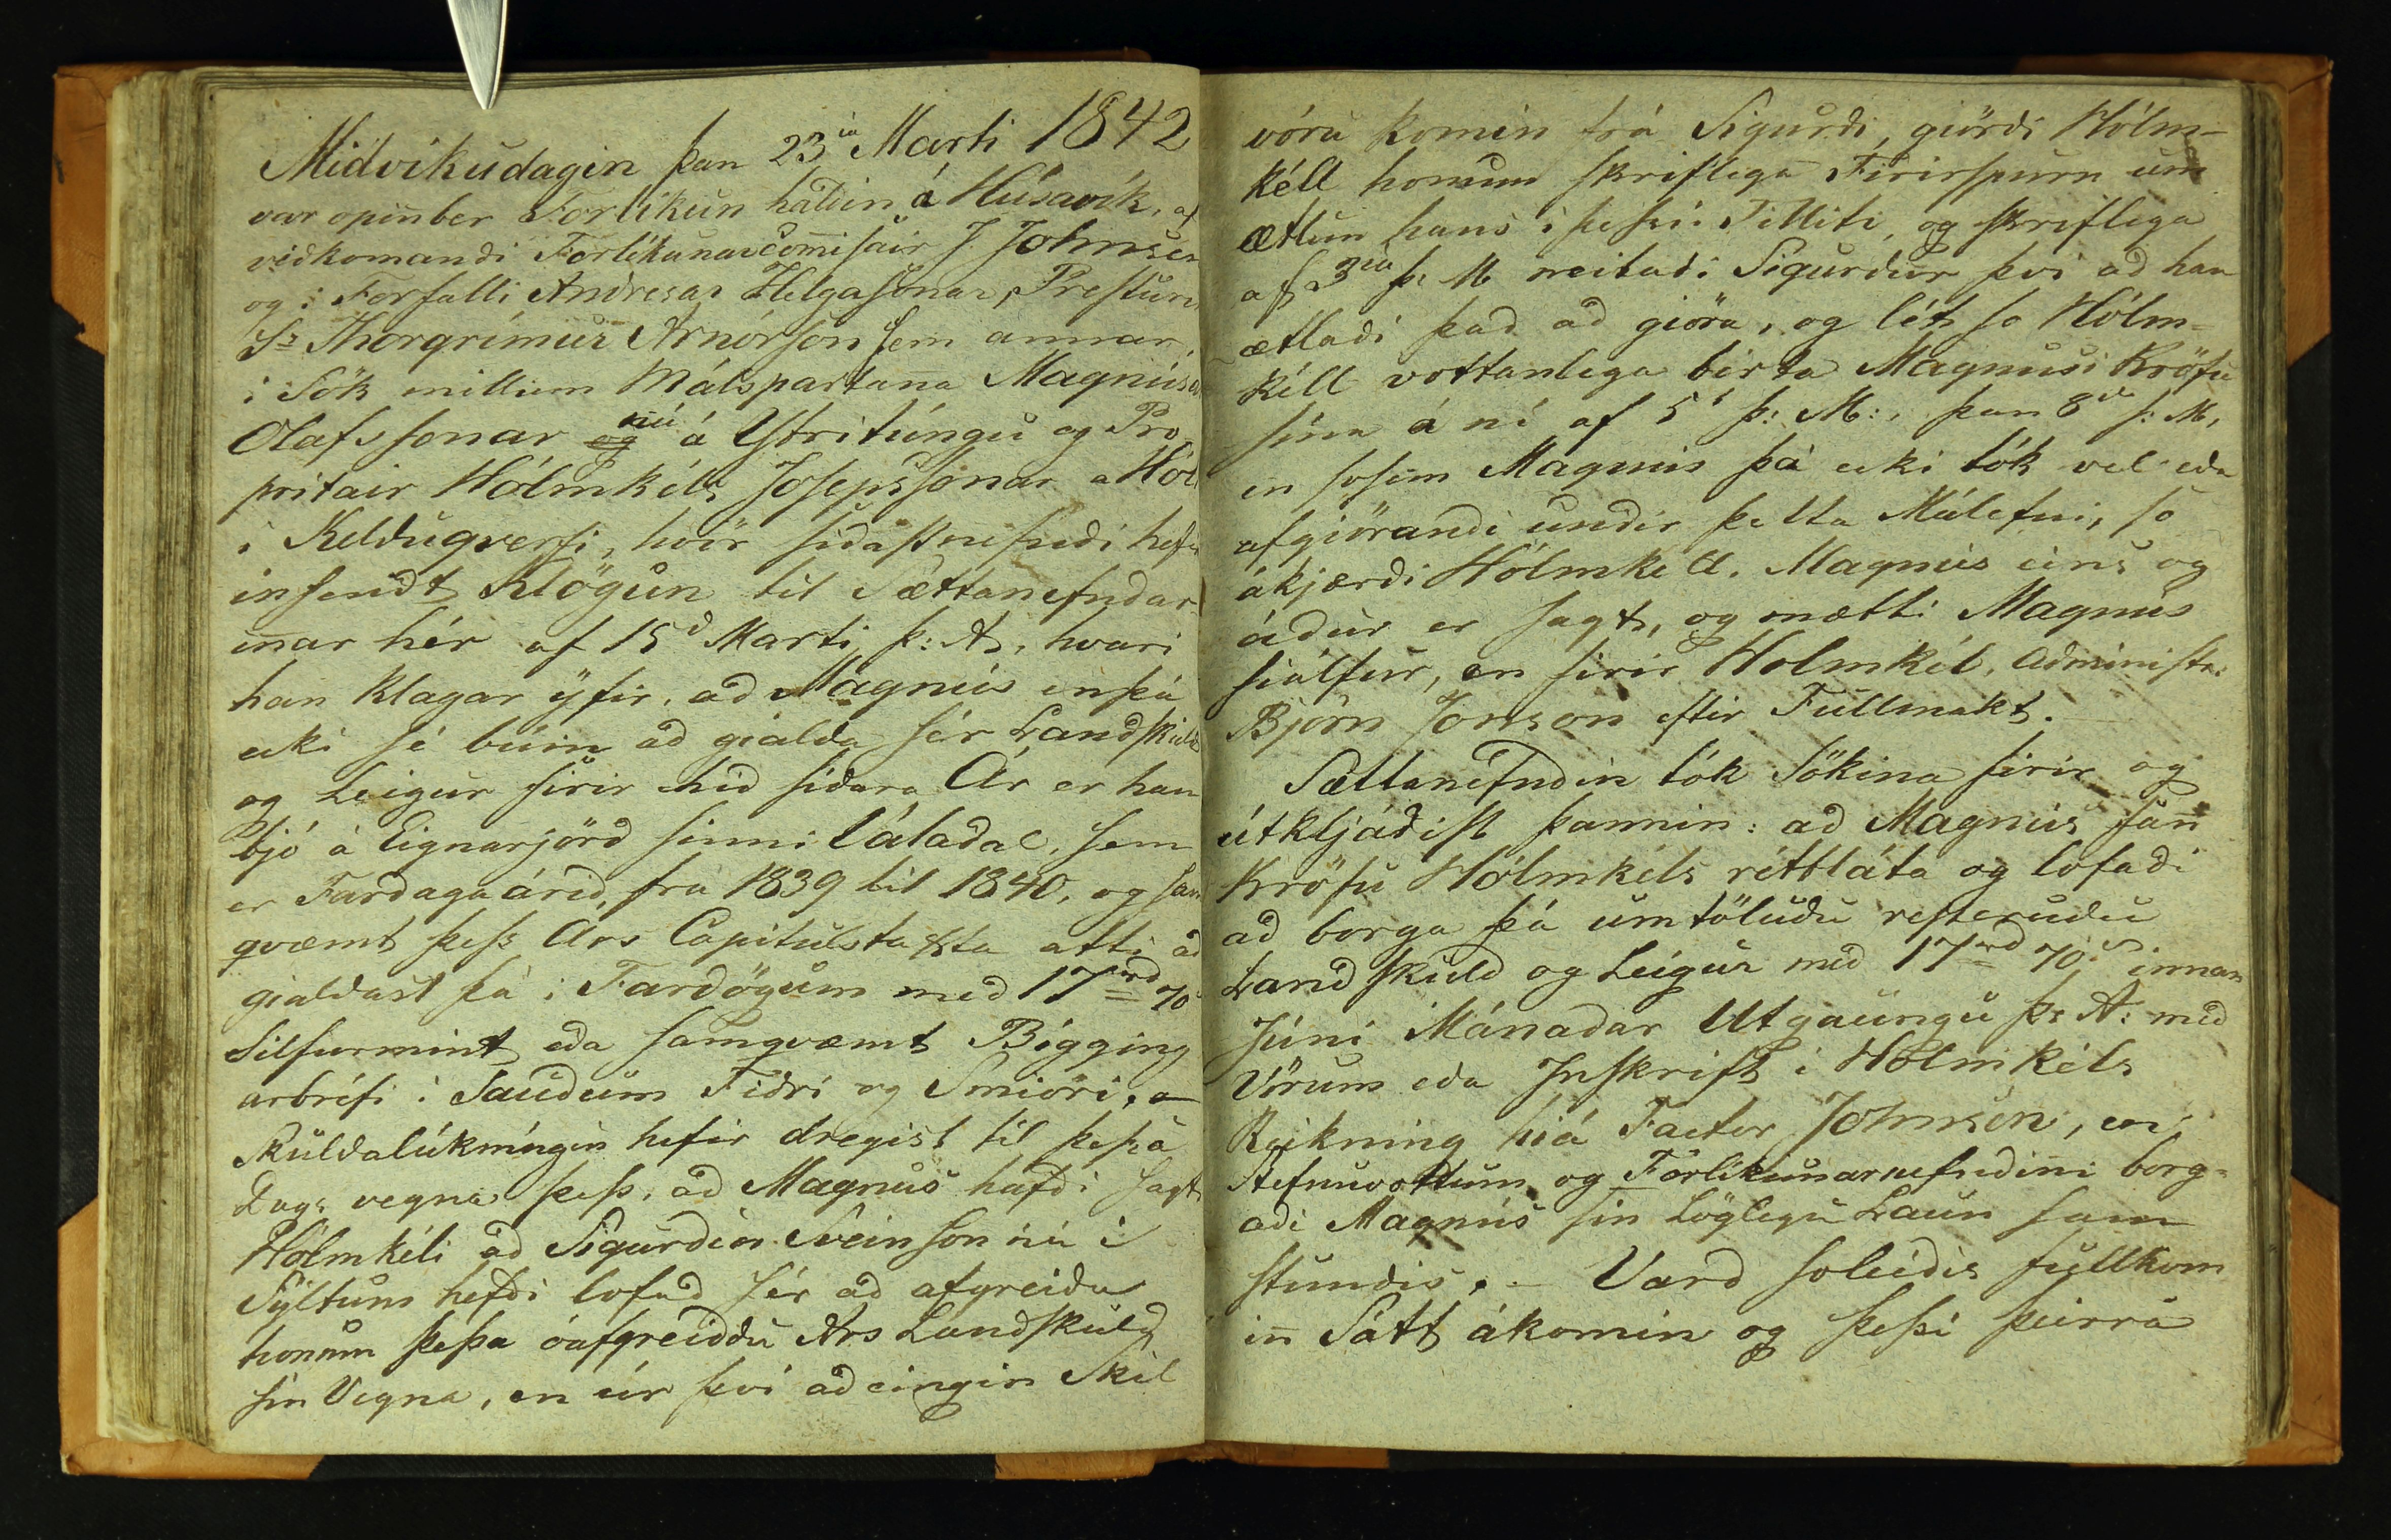 Midvikudagin þan 23ia Marti 1842
var opinber Forlíkun haldin á Húsavík, af
viðkomandi Forlíkunarcommisair J Johnsen
og i Forfalli Andresar Helgasonar, Presturin
Sr Thorgrímur Arnórson sem annar,
i Sök millum Málspartana Magnúsar
Olafssonar og nú á Ytritúngu og Pro
pritair Hólmkéls Josepssonar a Hól
i Kelduqverfi, hvör síðastnefndi hefur
insendt Klögun til Sættanefndar
innar hér af 15d Marti þ: A, hvari
han klagar ÿfir, að Magnús enþá
ecki sé búin að gialda sér Landskuld
og Leigur firir hið síðara Ár er han
bjó á Eignarjörð sinni láladal, sem
er Fardagaárið, frá 1839 til 1840, og sam
qvæmt þess Árs Capitulstaxta atti að
gialdast þá i Fardögum með 17rd 70s
Silfurmint eða samqvæmt Bigging
arbréfi i Sauðum Fiðri og Smiöri. -
Skuldalúkníngin hefir dregist til þessa
Dags vegna þess, að Magnús hafði sagt
Hólmkéli að Sigurður Sveinson nú i
Syltum hefði lofað sér að afgreiða
honum þessa óafgreiddu Árs Landskuld
sín Vegna, en úr því að eingin Skil
vóru komin frá Sigurði, giörði Hólm-
kéll honum skriflega Firirspurn um
ætlun hans i þessu Tilliti, og skriflega
af 3ia þ: M neitaði Sigurður því að han
ætlaði það að giöra, og lét so Hólm-
kéll vottanlega birta Magnúsi Kröfu
sína á ní af 5t þ: M:, þan 8da s: M,
en sosem Magnús þá ecki tók vel eða
afgiörandi undir þetta Málefni, so
ákjærði Hólmkell. Magnús eins og
áður er sagt, og mætti Magnús
siálfur, en firir Holmkél, Administr:
Björn Jonson eftir Fullmakt.
Sættanefndin tók Sökina firir og
útkljáðist þannin: að Magnús fan
Kröfu Hólmkéls réttláta og lofaði
að borga þá umtöluðu resteruðu
Landskuld og Leigur með 17rd 70s innan
Júní Mánaðar Utgaungu þ: A: með
Vörum eða Inskrift i Hólmkéls
Reikning hiá Factor Johnsen, en
Stefnuvottum og Forlíkunarnefndinni borg-
aði Magnús sín Löglegu Laun sam
stundis. - Varð soleiðis fullkom
in Sátt ákomin og þessi þeirra